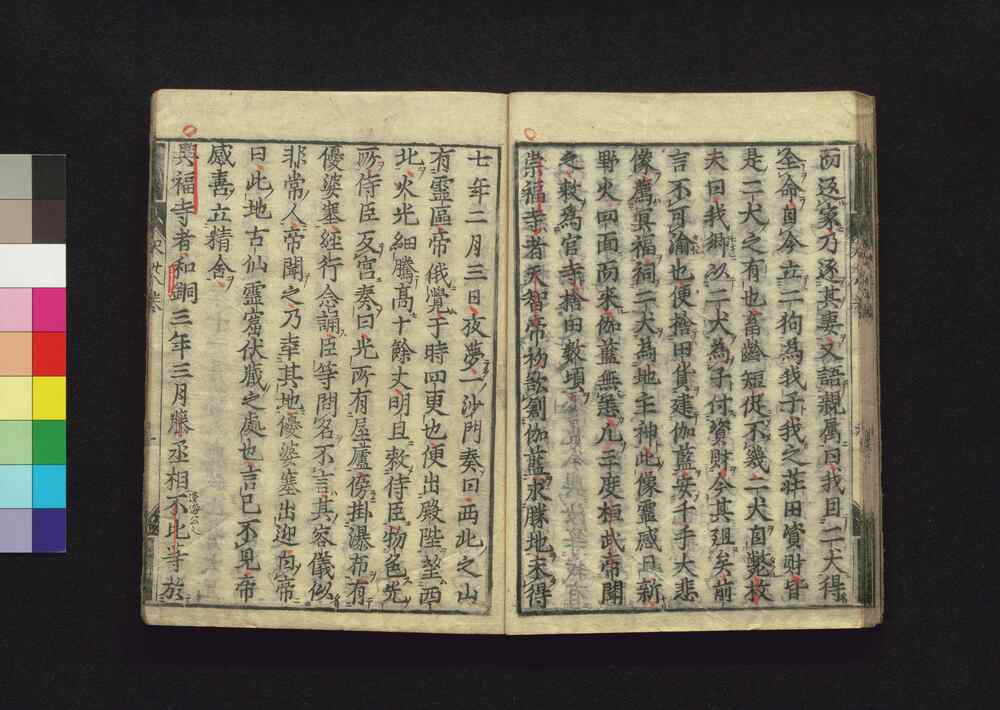 而返家乃逐其妻又語親属曰我因二犬得
全命自今立二狗為我子我之荘田資財皆
是二犬之有也畜齢短促不幾二犬自斃枚
夫曰我郷以二犬為子付資財今其殂矣前
言不可渝也便捨田貨建伽藍安千手大悲
像薦冥福祠二犬為地主神此像霊感日新
野火四面而来伽藍無恙凡三度桓武帝聞
之敕為官寺捨田数頃
崇福寺者天智帝初欲創伽藍求勝地未得
七年二月三日夜夢一沙門奏曰西北之山
有靈區帝俄覺于時四更也便出殿陛望西
北火光細騰高十餘丈明旦敕侍臣物色光
所侍臣反宮奏曰光所有屋廬傍掛瀑布有
優婆塞經行念誦臣等問名不言其容儀似
非常人帝聞之乃幸其地優婆塞出迎白帝
曰此地古仙靈窟伏蔵之處也言已不見帝
感喜立精舎
興福寺者和銅三年三月藤丞相不比等於
淡海公也